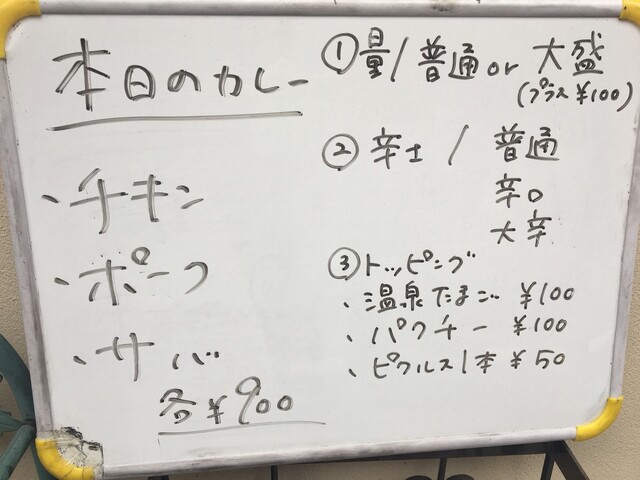 本日のカレー
・チキン
・ポーク
・サバ
各¥900
①量/普通or大盛
(プラス¥100)
②辛さ/普通
辛口
大辛
③トッピング
・温泉たまご ¥100
・パクチー ¥100
・ピクルス1本 ¥50